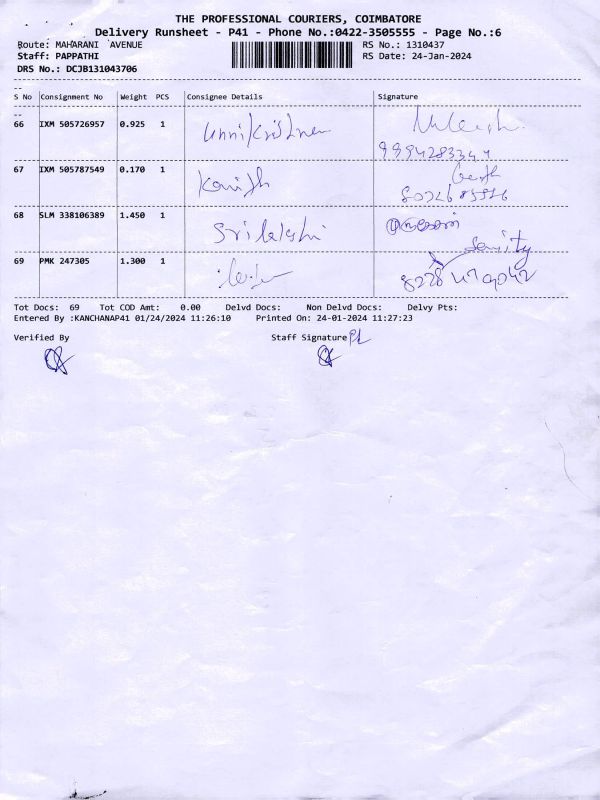 THE PROFESSIONAL COURIERS, COIMBATORE
Delivery Runsheet - P41 - Phone No.:0422-3505555 - Page No.:6
Route: MAHARANI AVENUE RS No.: 1310437
Staff: PAPPATHI RS Date: 24-Jan-2024
DRS No.: DCJB131043706
S No Consignment No Weight PCS Consignee Details Signature
66 IXM 505726957 0.925 1 Unnikrishnan
9994283344
67 IXM 505787549 0.170 1 Kanish
68 SLM 338106389 1.450 1 Srilakshi
Semity
69 PMK 247305 1.300 1
Tot Docs: 69 Tot COD Amt: 0.00 Delvd Docs: Non Delvd Docs: Delvy Pts:
Entered By :KANCHANAP41 01/24/2024 11:26:10 Printed On: 24-01-2024 11:27:23
Verified By Staff Signature